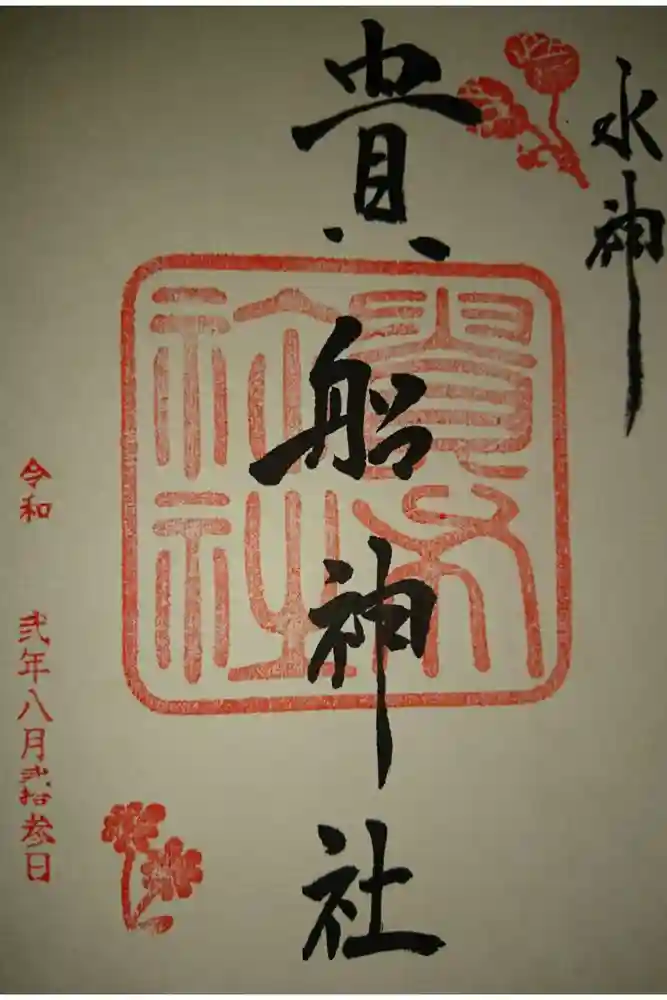 水神
貴船神社
令和 弐年八月弐拾参日